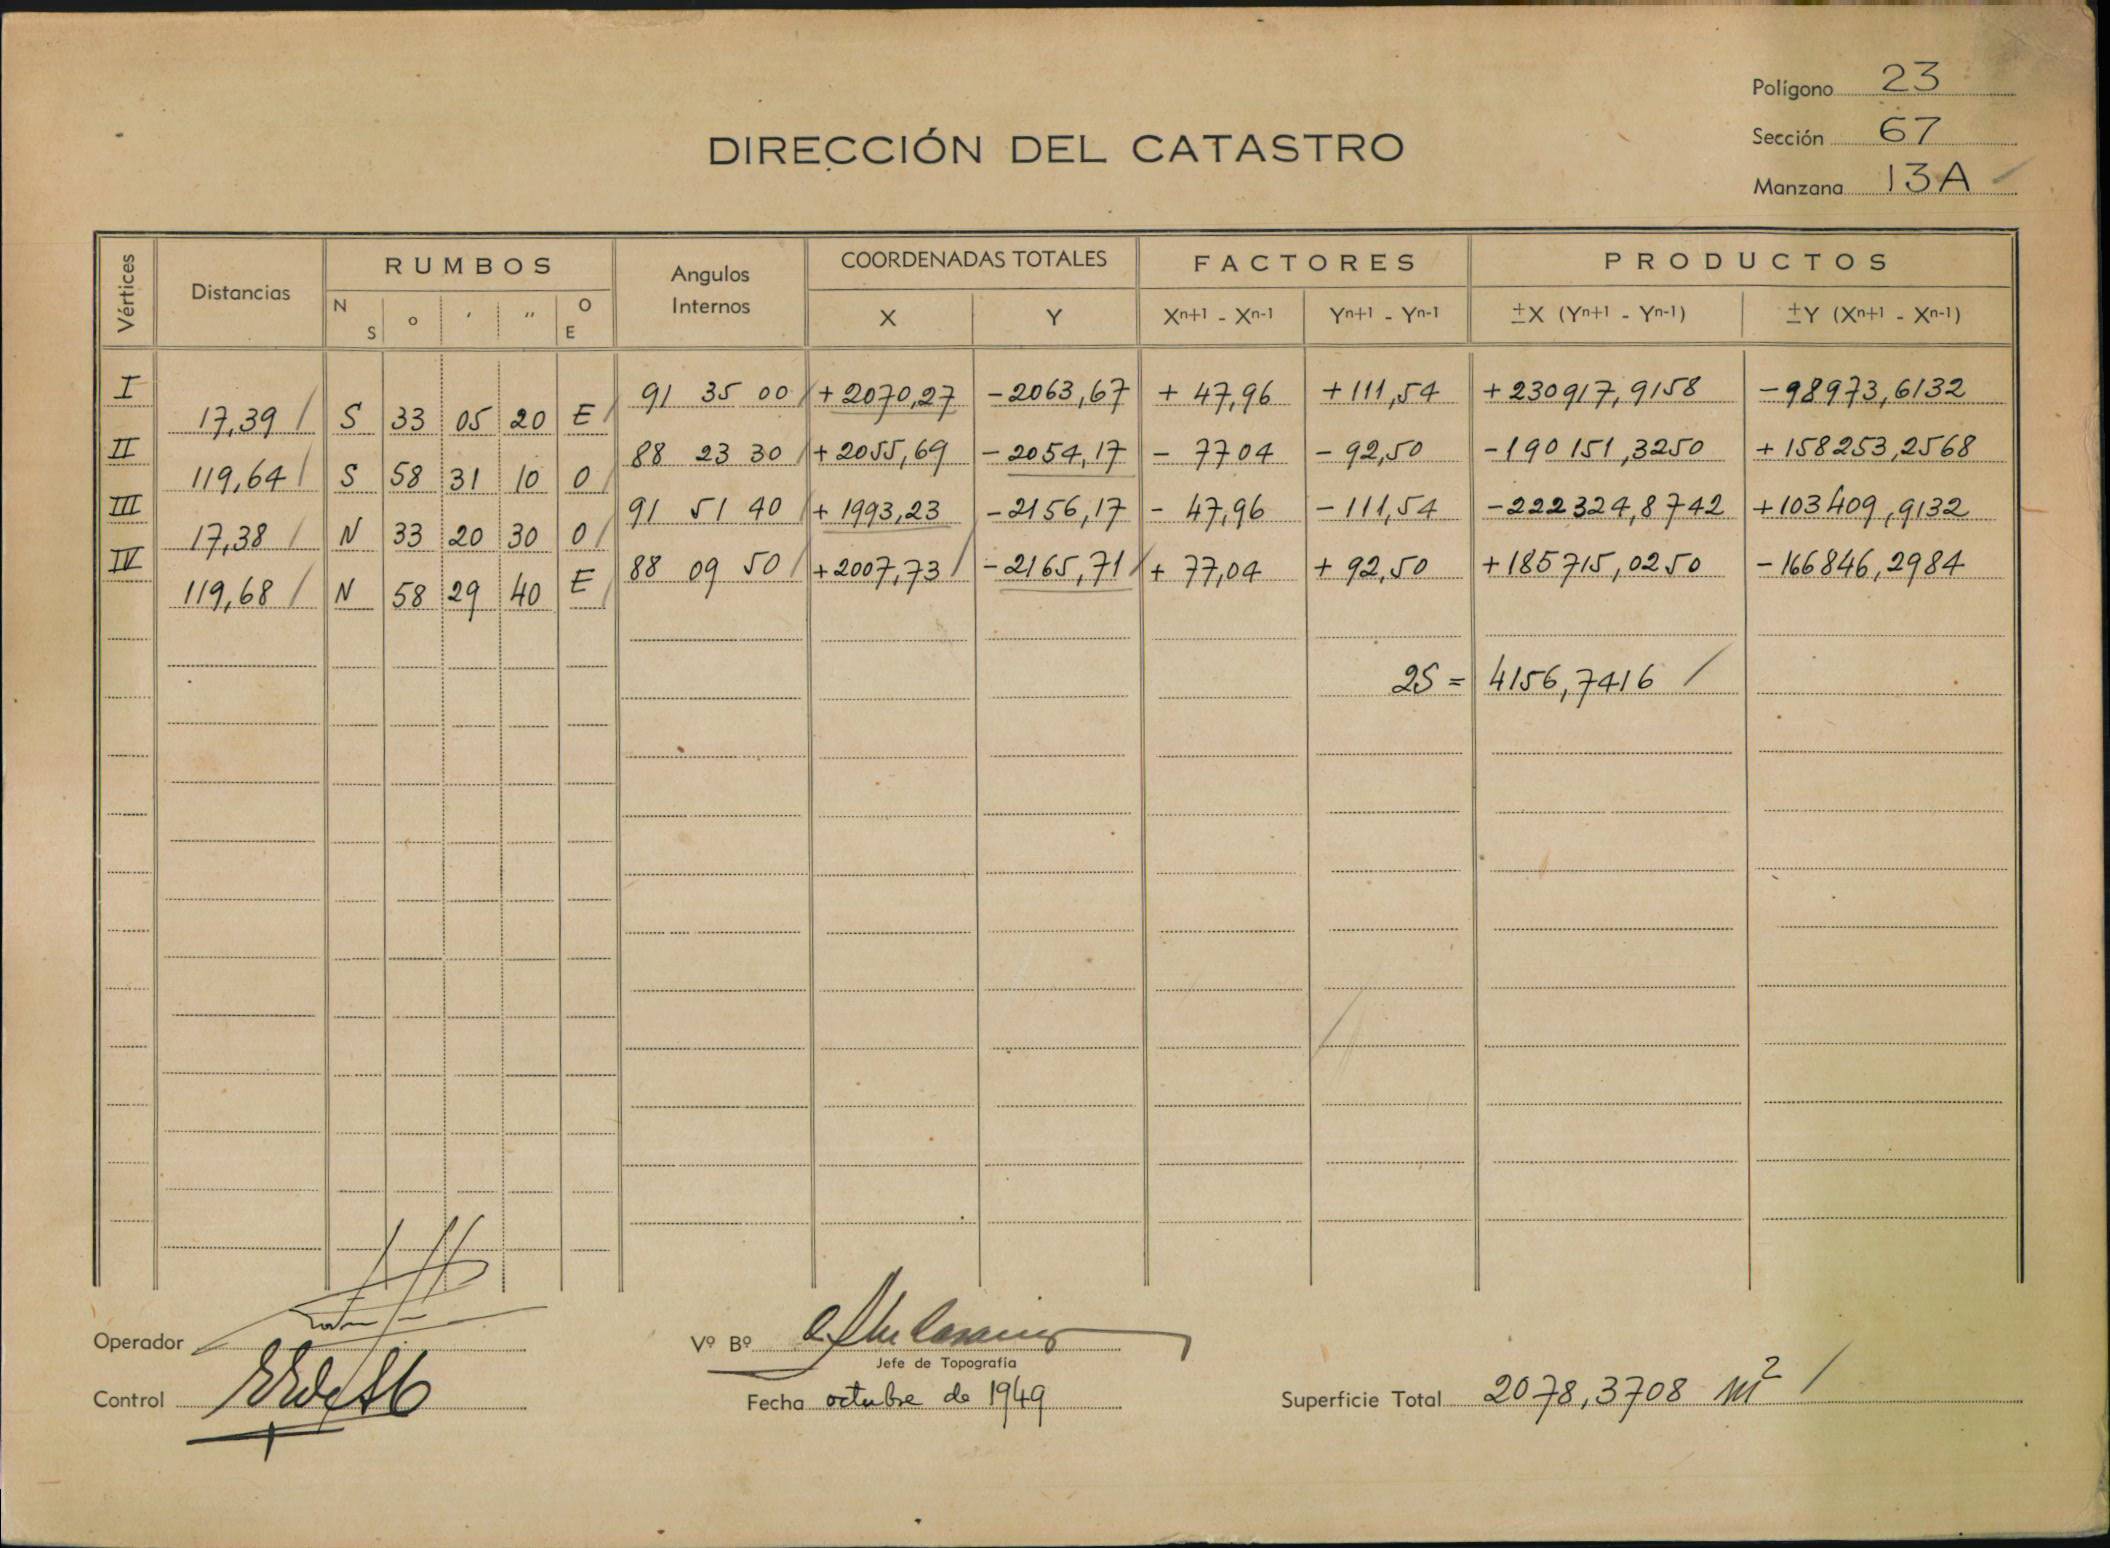 Polígono 23
Sección 67
Manzana 13A
DIRECCIÓN DEL CATASTRO
Vértices Distancias RUMBOS Angulos Internos COORDENADAS TOTALES FACTORES PRODUCTOS
N S o ' '' O E X Y Xn+1 - Xn-1 Yn+1 - Yn-1 ±X (Yn+1 - Yn-1) ±Y (Xn+1 - Xn-1)
I 91 35 00 +2070,27 -2063,67 + 47,96 +111,54 +230917,9158 -98973,6132
17,39 S 33 05 20 E
II 88 23 30 +2055,69 -2054,17 - 7704 -92,50 -190151,3250 +158253,2568
119,64 S 58 31 10 O
III 91 51 40 + 1993,23 -2156,17 - 47,96 -111,54 -222324,8742 +103409,9132
17,38 N 33 20 30 O
IV 88 09 50 +2007,73 -2165,71 + 77,04 + 92,50 +185715,0250 -166846,2984
119,68 N 58 29 40 E
2S = 4156,7416
Operador
Vº Bº
Jefe de Topografía
Control
Fecha octubre de 1949
Superficie Total 2078,3708 m2